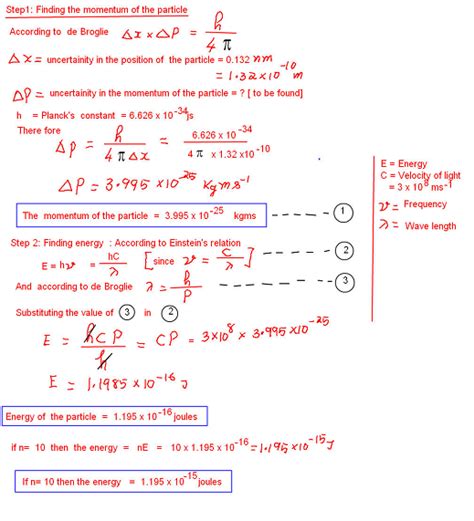 Step1: Finding the momentum of the particle
According to de Broglie Δx × Δp = h / 4π
Δx = uncertainity in the position of the particle = 0.132 nm
= 1.32 × 10^-10 m
Δp = uncertainity in the momentum of the particle = ? [ to be found]
h = Planck's constant = 6.626 x 10^-34 js
There fore
Δp = h / 4πΔx = 6.626 x 10^-34 / 4π x 1.32 x 10^-10
Δp = 3.995 × 10^-25 kgms^-1
The momentum of the particle = 3.995 x 10^-25 kgms ----- 1
E = Energy
C = Velocity of light
= 3 x 10^8 ms^-1
ν = Frequency
λ = Wave length
Step 2: Finding energy : According to Einstein's relation
E = hν = hC / λ [since ν = C / λ] ----- 2
And according to de Broglie λ = h / P ----- 3
Substituting the value of 3 in 2
E = hCP / h = CP = 3×10^8 × 3.995×10^-25
E = 1.1985 × 10^-16 J
Energy of the particle = 1.195 x 10^-16 joules
if n= 10 then the energy = nE = 10 x 1.195 x 10^-16 = 1.195 × 10^-15 J
If n= 10 then the energy = 1.195 x 10^-15 joules